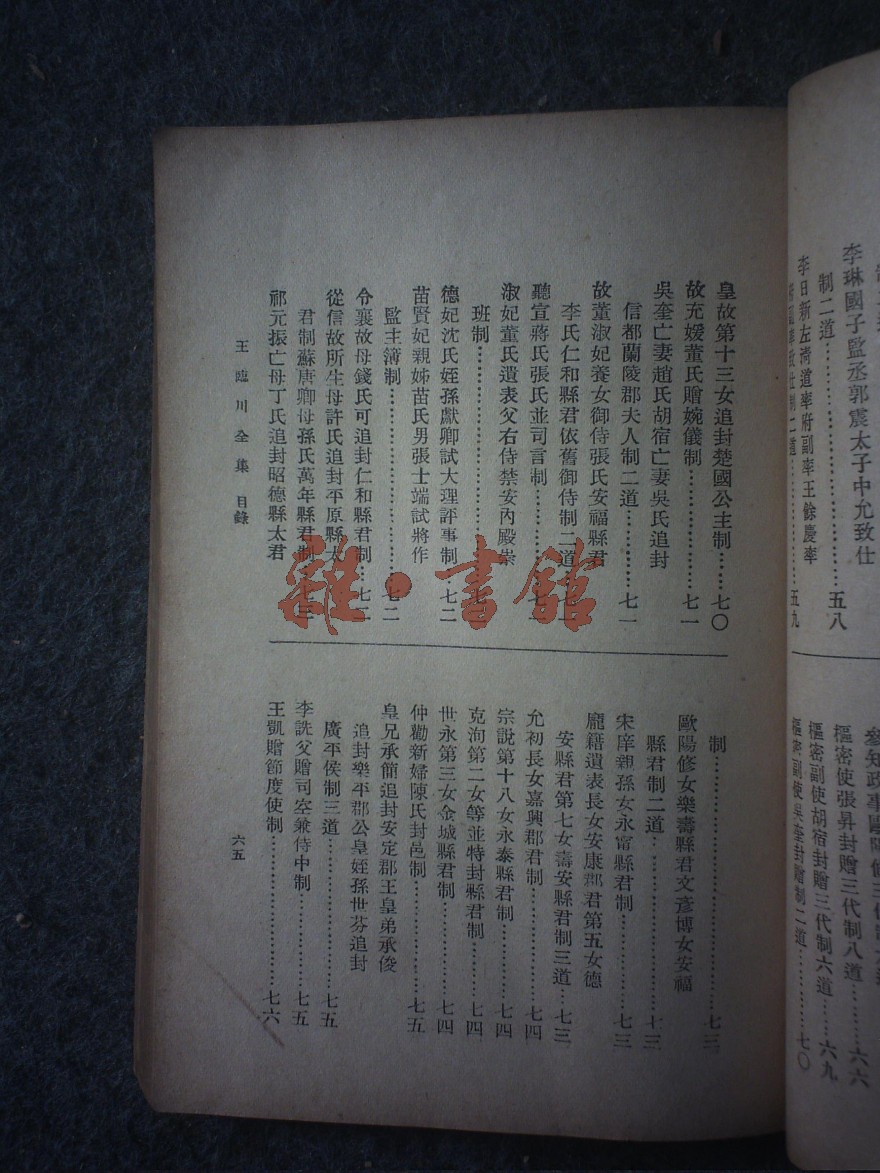 李琳國子監丞郭震太子中允致仕
制二道………………五八
李日新左淸道率府副率王餘慶率
樞密使張昇封贈三代制八道………六六
樞密副使胡宿封贈三代制六道……六九
樞密副使吳奎封贈制二道…………七〇
皇故第十三女追封楚國公主制……七〇
故充媛董氏贈婉儀制………………七一
吳奎亡妻趙氏胡宿亡妻吳氏追封
信都蘭陵郡夫人制二道……………七一
故董淑妃養女御侍張氏安福縣君
李氏仁和縣君依舊御侍制二道
聽宣蔣氏張氏並司言制……………
淑妃董氏遺表父右侍禁安內殿崇
班制………………………………
德妃沈氏姪孫獻卿試大理評事制…七二
苗賢妃親姊苗氏男張士端試將作
監主簿制……………………………七二
令襄故母錢氏可追封仁和縣君制…七二
從信故所生母許氏追封平原縣太
君制蘇唐卿母孫氏萬年縣君制……七三
祁元振亡母丁氏追封昭德縣太君
制……………………………………七三
歐陽修女樂壽縣君文彥博女安福
縣君制二道…………………………七三
宋庠親孫女永甯縣君制……………七三
龐籍遺表長女安康郡君第五女德
安縣君第七女壽安縣君制三道……七三
允初長女嘉興郡君制………………七四
宗說第十八女永泰縣君制…………七四
克洵第二女等並特封縣君制………七四
世永第三女金城縣君制……………七四
仲勸新婦陳氏封邑制………………七五
皇兄承簡追封安定郡王皇弟承俊
追封樂平郡公皇姪孫世芬追封
廣平侯制三道………………………七五
李詵父贈司空兼侍中制……………七五
王凱贈節度使制……………………七六
王臨川全集 目錄
六五
雜·書館